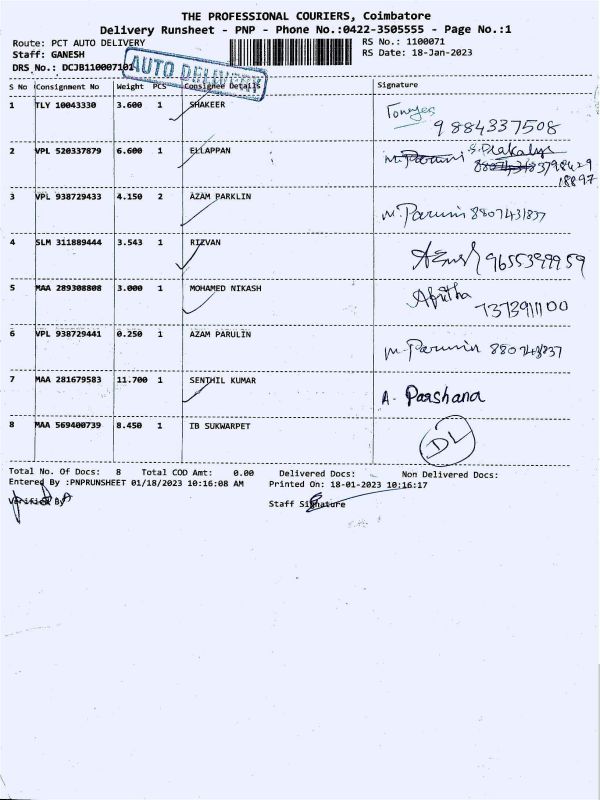 THE PROFESSIONAL COURIERS, Coimbatore
Delivery Runsheet - PNP - Phone No.:0422-3505555 - Page No.:1
Route: PCT AUTO DELIVERY RS No.: 1100071
Staff: GANESH RS Date: 18-Jan-2023
DRS No.: DCJB110007101
AUTO DELIVERY
S No Consignment No Weight PCS Consignee Details Signature
1 TLY 10043330 3.600 1 SHAKEER
9884337508
2 VPL 520337879 6.600 1 ELLAPPAN
3 VPL 938729433 4.150 2 AZAM PARKLIN
8807431837
4 SLM 311889444 3.543 1 RIZVAN
9655399959
5 MAA 289308808 3.000 1 MOHAMED NIKASH
6 VPL 938729441 0.250 1 AZAM PARULIN
7 MAA 281679583 11.700 1 SENTHIL KUMAR
A. Parshana
8 MAA 569400739 8.450 1 IB SUKWARPET
DL
Total No. Of Docs: 8 Total COD Amt: 0.00 Delivered Docs: Non Delivered Docs:
Entered By :PNPRUNSHEET 01/18/2023 10:16:08 AM Printed On: 18-01-2023 10:16:17
Verified By Staff Signature